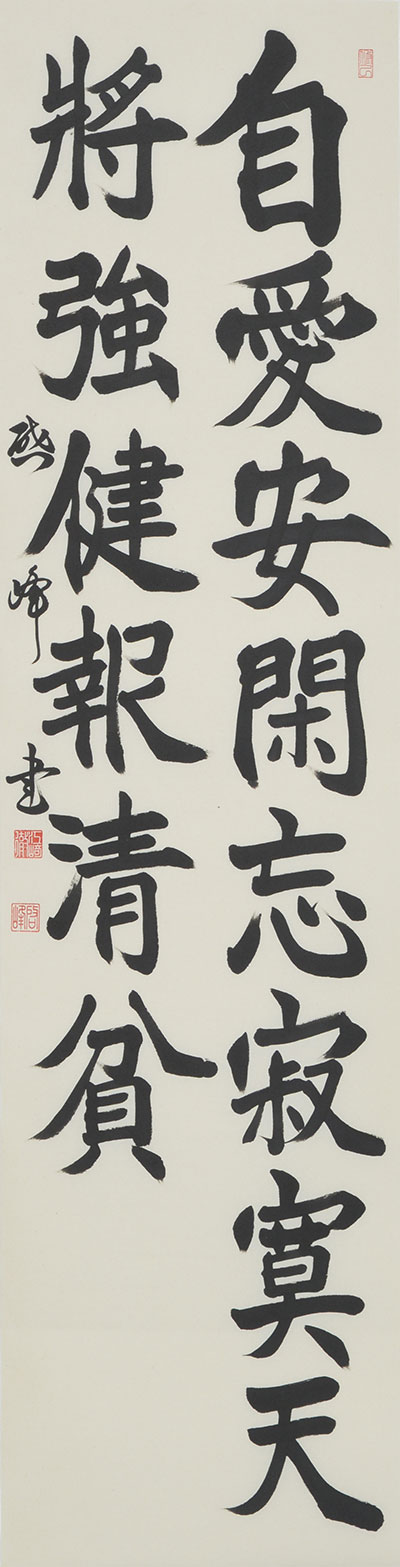 自愛安閑忘寂寞天
將強健報清貧
峰書